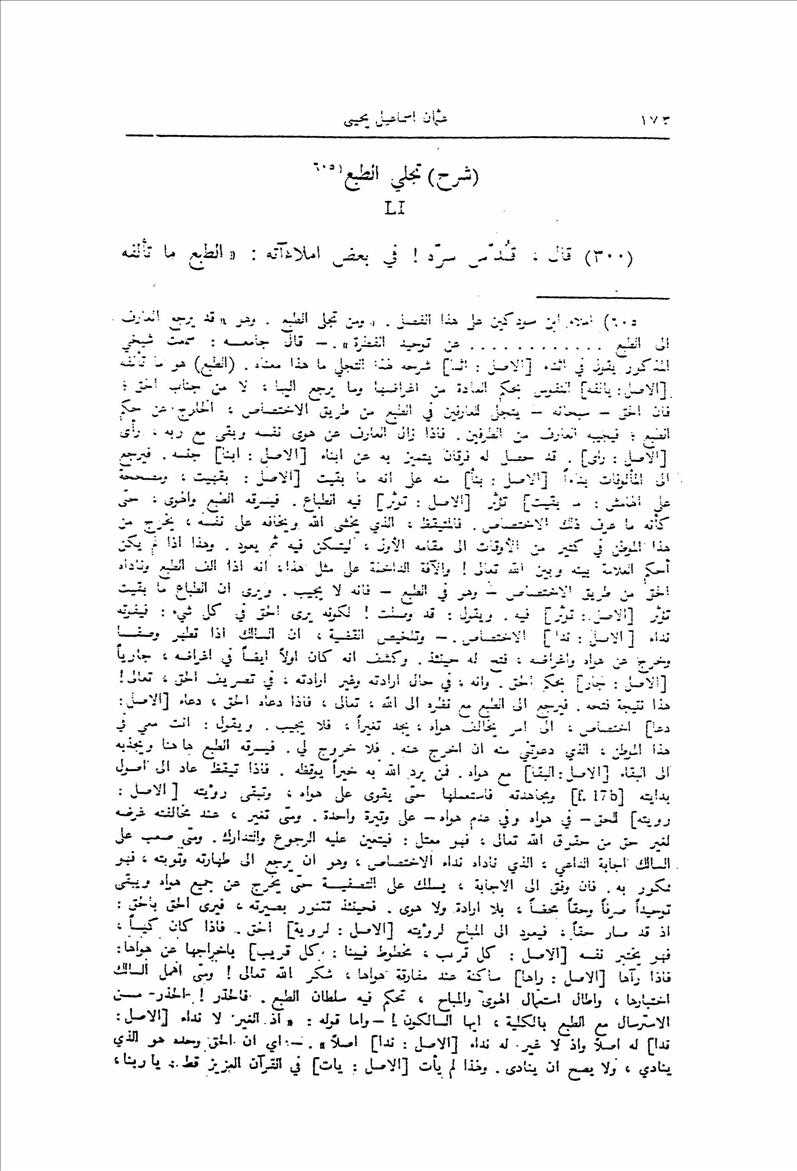 ١٧٣ عثمان اسماعيل يحيى
(شرح) تجلي الطبع ٦٠٥)
LI
(٣٠٠) قال ، قُدّس سرّه ! في بعض املاءآته : « الطبع ما تألفه
٦٠٥) املاء ابن سودكين على هذا الفصل . « ومن تجلي الطبع . وهو « قد يرجع العارف
الى الطبع . . . . . . . . . . . . عن توحيد الفطرة » . – قال جامعه : سمعت شيخي
المذكور يقول في اثناء [الاصل : اثنا] شرحه لهذا التجلي ما هذا معناه . (الطبع) هو ما تألفه
[الاصل : يالفه] النفوس بحكم العادة من اغراضها وما يرجع اليها ، لا من جناب الحق ؛
فان الحق – سبحانه – يتجلى للعارفين في الطبع من طريق الاختصاص ، الخارج عن حكم
الطبع ؛ فيجيبه العارف من الطرفين . فاذا زال العارف عن هوى نفسه وبقى مع ربه ، رأى
[الاصل : راى] . قد حصل له فرقان يتميز به عن ابناء [الاصل : ابنا] جنسه . فيرجع
الى المألوفات بناءاً [الاصل : بنأ] منه على انه ما بقيت [الاصل : بقييت ، ومصححة
على الهامش : – بقيت] تؤثر [الاصل : توثر] فيه الطباع . فيسرقه الطبع والهوى ، حتى
كأنه ما عرف ذلك الاختصاص . فالمتيقظ ، الذي يخشى الله ويخافه على نفسه ، يخرج من
هذا الموطن في كثير من الأوقات الى مقامه الأول ، ليتمكن فيه ثم يعود . وهذا اذا لم يكن
أحكم العلامة بينه وبين الله تعالى ! والآفة الداخلة على مثل هذا ، انه اذا الف الطبع وناداه
الحق من طريق الاختصاص – وهو في الطبع – فانه لا يجيب . ويرى ان الطباع ما بقيت
تؤثر [الاصل : توثر] فيه . ويقول : قد وصلت ! لكونه يرى الحق في كل شيء : فيفوته
نداء [الاصل : ندا] الاختصاص . – وتلخيص القضية ، ان السالك اذا تطهر وصفا
وخرج عن هواه واغراضه ، فتح له حينئذ . وكشف انه كان اولاً ايضاً في اغراضه ، جارياً
[الاصل : جار] بحكم الحق . وانه ، في حال ارادته وغير ارادته ، في تصريف الحق ، تعالى !
هذا نتيجة فتحه . فيرجع الى الطبع مع نظره الى الله ، تعالى ، فاذا دعاه الحق ، دعاء [الاصل :
دعا] اختصاص ، الى امر يخالف هواه ، يجد تغيراً ، فلا يجيب . ويقول : انت معي في
هذا الموطن ، الذي دعوتني منه ان اخرج عنه . فلا خروج لي . فيسرقه الطبع هاهنا ويجذبه
الى البقاء [الاصل : البقا] مع هواه . فمن يرد الله به خيراً يوقظه . فاذا تيقظ عاد الى اصول
بدايته [f. 17b] ومجاهدته فاستعملها حتى يقوى على هواه ، وتبقى رؤيته [الاصل :
رويته] للحق – في هواه وفي عدم هواه – على وتيرة واحدة . ومتى تغير ، عند مخالفته غرضه
لغير حق من حقوق الله تعالى ، فهو معتل : فيتعين عليه الرجوع والتدارك . ومتى صعب على
السالك اجابة الداعي ، الذي ناداه نداء الاختصاص ، وهو ان يرجع الى طهارته وتوبته ، فهو
ممكور به . فان وفق الى الاجابة ، يسلك على التصفية حتى يخرج عن جميع هواه ويبقى
توحيداً صرفاً وحقاً محضاً ، بلا ارادة ولا هوى . فحينئذ تتنور بصيرته ، فيرى الحق بالحق :
اذ قد صار حقاً ، فيعود الى المباح لرؤيته [الاصل : لروية] الحق . فاذا كان كيساً ،
فهو يختبر نفسه [الاصل : كل قرب ، مخطوط فيينا : كل قريب] باخراجها عن هواها :
فاذا رآها [الاصل : راها] ساكنة عند مفارقة هواها ، شكر الله تعالى ! ومتى اهمل السالك
اختبارها ، واطال استعمال الهوى والمباح ، تحكم فيه سلطان الطبع . فالحذر ! الحذر – من
الاسترسال مع الطبع بالكلية ، ايها السالكون ! – واما قوله : « اذ الغير لا نداء [الاصل :
ندا] له اصلاً واذ لا غير له نداء [الاصل : ندا] اصلاً » . – اي ان الحق وحده هو الذي
ينادي ، ولا يصح ان ينادى . ولهذا لم يأت [الاصل : يات] في القرآن العزيز قط : يا ربنا ،